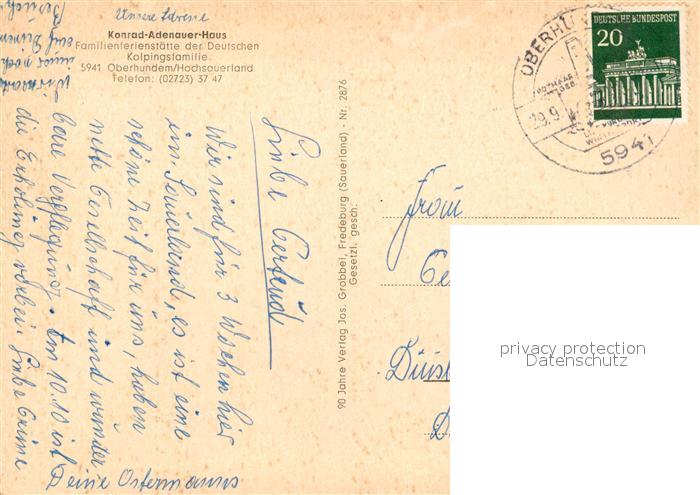 Unsere Adresse
Konrad-Adenauer-Haus
Familienferienstätte der Deutschen
Kolpingsfamilie
5941 Oberhundem/Hochsauerland
Telefon: (02723) 37 47
Liebe Gertrud
Wir sind für 3 Wochen hier
im Sauerland, es ist eine
schöne Zeit für uns, haben
nette Gesellschaft und wunder
bare Verpflegung. Am 10.10 ist
die Erholung vorbei. Liebe Grüße
Deine Ostermanns
90 Jahre Verlag Jos. Grobbel, Fredeburg (Sauerland) - Nr. 2876
Gesetzl. gesch.
DEUTSCHE BUNDESPOST
20
29.9
5941
Frau
Ge
Duis
privacy protection
Datenschutz